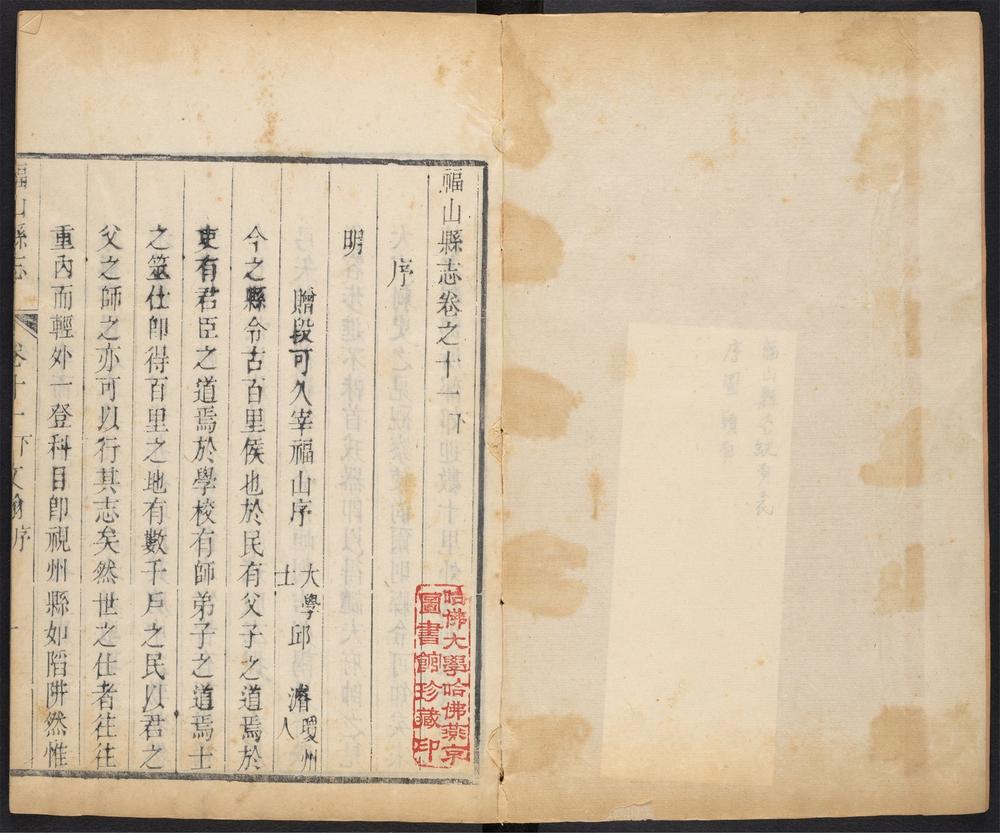 福山縣志卷之十一下
序
明
贈段可久宰福山序 大學士邱濬瓊州人
今之縣令古百里侯也於民有父子之道焉於
吏有君臣之道焉於學校有師弟子之道焉士
之筮仕卽得百里之地有數千戶之民以君之
父之師之亦可以行其志矣然世之仕者往往
重內而輕外一登科目卽視州縣如陷阱然惟
福山縣志 卷十一下文翰序 一
哈佛大學哈佛燕京
圖書館珍藏印